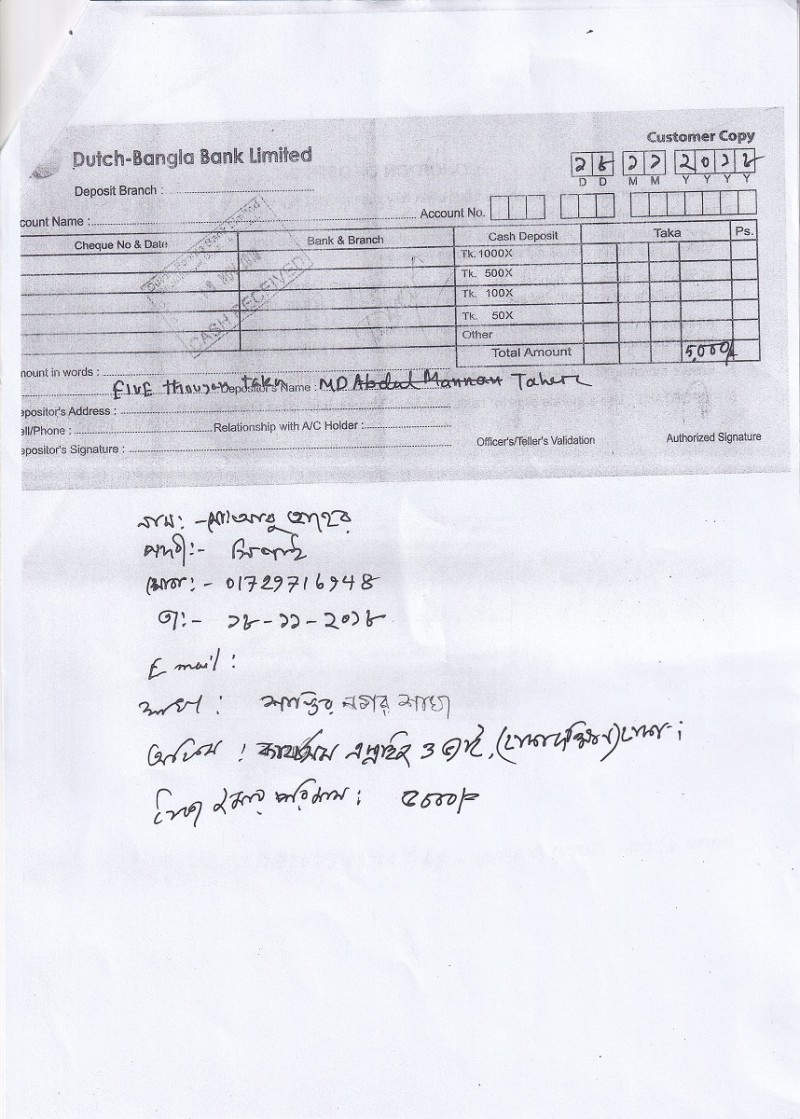 Customer Copy
Dutch-Bangla Bank Limited
২৮ ১১ ২০১৮
D D M M Y Y Y Y
Deposit Branch :
count Name : Account No.
Cheque No & Date Bank & Branch Cash Deposit Taka Ps.
Tk. 1000X
Tk. 500X
Tk. 100X
Tk. 50X
Other
Total Amount 5,000/-
CASH RECEIVED
mount in words :
five thousan taka Depositor's Name : MD Abdul Mannan Taher
epositor's Address :
ell/Phone : Relationship with A/C Holder :
epositor's Signature : Officer's/Teller's Validation Authorized Signature
নাম: -
পদবী:- সিপাই
মোবা: - 01729716948
তা:- ১৮-১১-২০১৮
E mail :
শাখা : শান্তির নগর শাখা
অফিস : ও
জমার পরিমাণ : ৫০০০/-